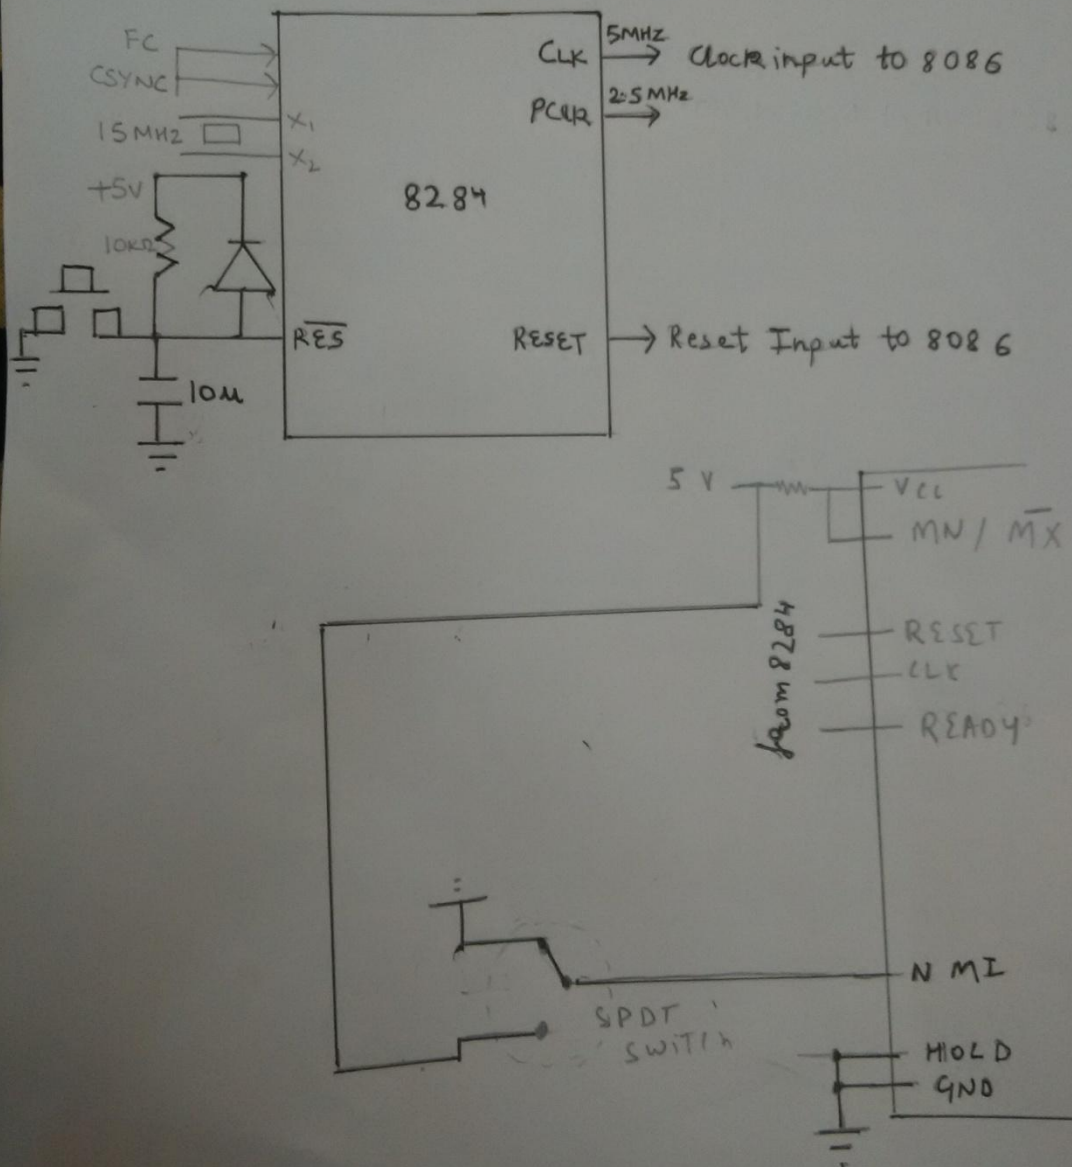 FC
CSYNC
15MHZ
X1
X2
+5V
10KΩ
8284
CLK
5MHZ
Clock input to 8086
PCLK
2.5MHz
RES
RESET
Reset Input to 8086
10µ
5 V
VCC
MN / MX
from 8284
RESET
CLK
READY
NMI
SPDT
SWITCH
HOLD
GND